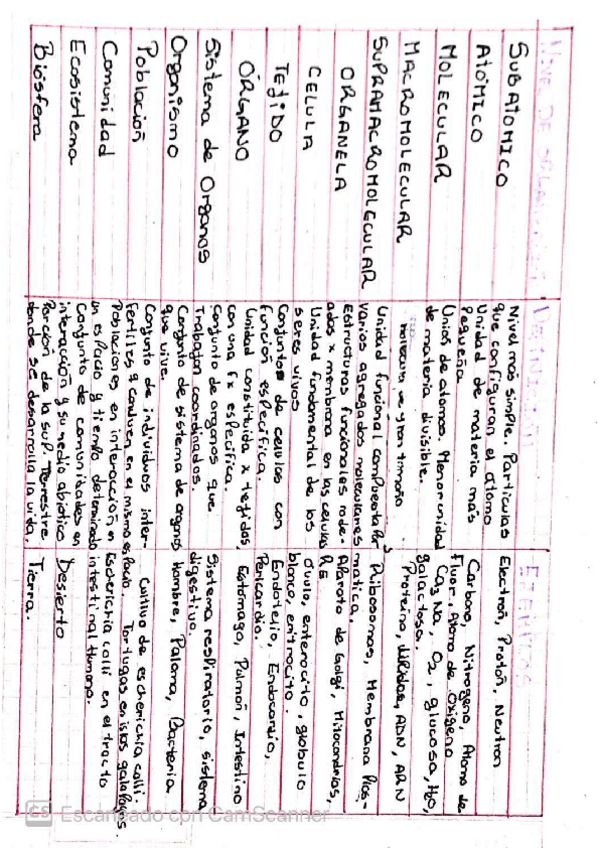 NIVEL DE ORGANIZACIÓN
DEFINICIÓN
EJEMPLOS
SUBATOMICO
Nivel más simple. Particulas
que configuran el atomo
Electroñ, Protoñ, Neutron
ATOMICO
Unidad de materia más
Pequeña
Carbono, Nitrogeno, Atomo de
Fluor, Atomo de oxigeno
MOLECULAR
Unios de atomos. Menor unidad
de materia divisible.
O2, glucosa, H2O,
galactosa.
MACROMOLECULAR
molecula de gran tamaño
Proteina, ADN, ARN
SUPRAMACROMOLECULAR
Unidad funcional compuesta por
varios agregados moleculares
Ribosomas, Membrana Plas-
matica.
ORGANELA
Estructuras funcionales rode-
adas x membrana en las celulas
Aparato de Golgi, Mitocondrias,
CELULA
Unidad fundamental de los
seres vivos
óvulo, enterocito, globulo
blanco, eritrocito.
TEJIDO
Conjuntos de celulas con
función específica.
Endotelio, Endocardio,
Pericardio.
ÓRGANO
Unidad constituida x tejidos,
con una fx especifica.
Estómago, Pulmoñ, Intestino
Sistema de Organos
Conjunto de organos que
Trabajan coordinados.
Sistema respiratorio, sistema
digestivo.
Organismo
Conjunto de sistema de organos
que vive.
Hombre, Paloma, Bacteria.
Poblacioñ
Conjunto de individuos inter-
Fertiles q conducen en el mismo espacio.
Cultivo de escherichia colli.
Tortugas en islas galapagos.
Comunidad
Poblaciones en interaccioñ en
un espacio y tiempo determinado
Escherichia colli en el tracto
intestinal humano.
Ecosistema
Conjunto de comunidades en
interaccioñ y su medio abiotico
Desierto
Biósfera
Porcioñ de la sup. Terrestre
donde se desarrolla la vida.
Tierra.
CS Escaneado con CamScanner